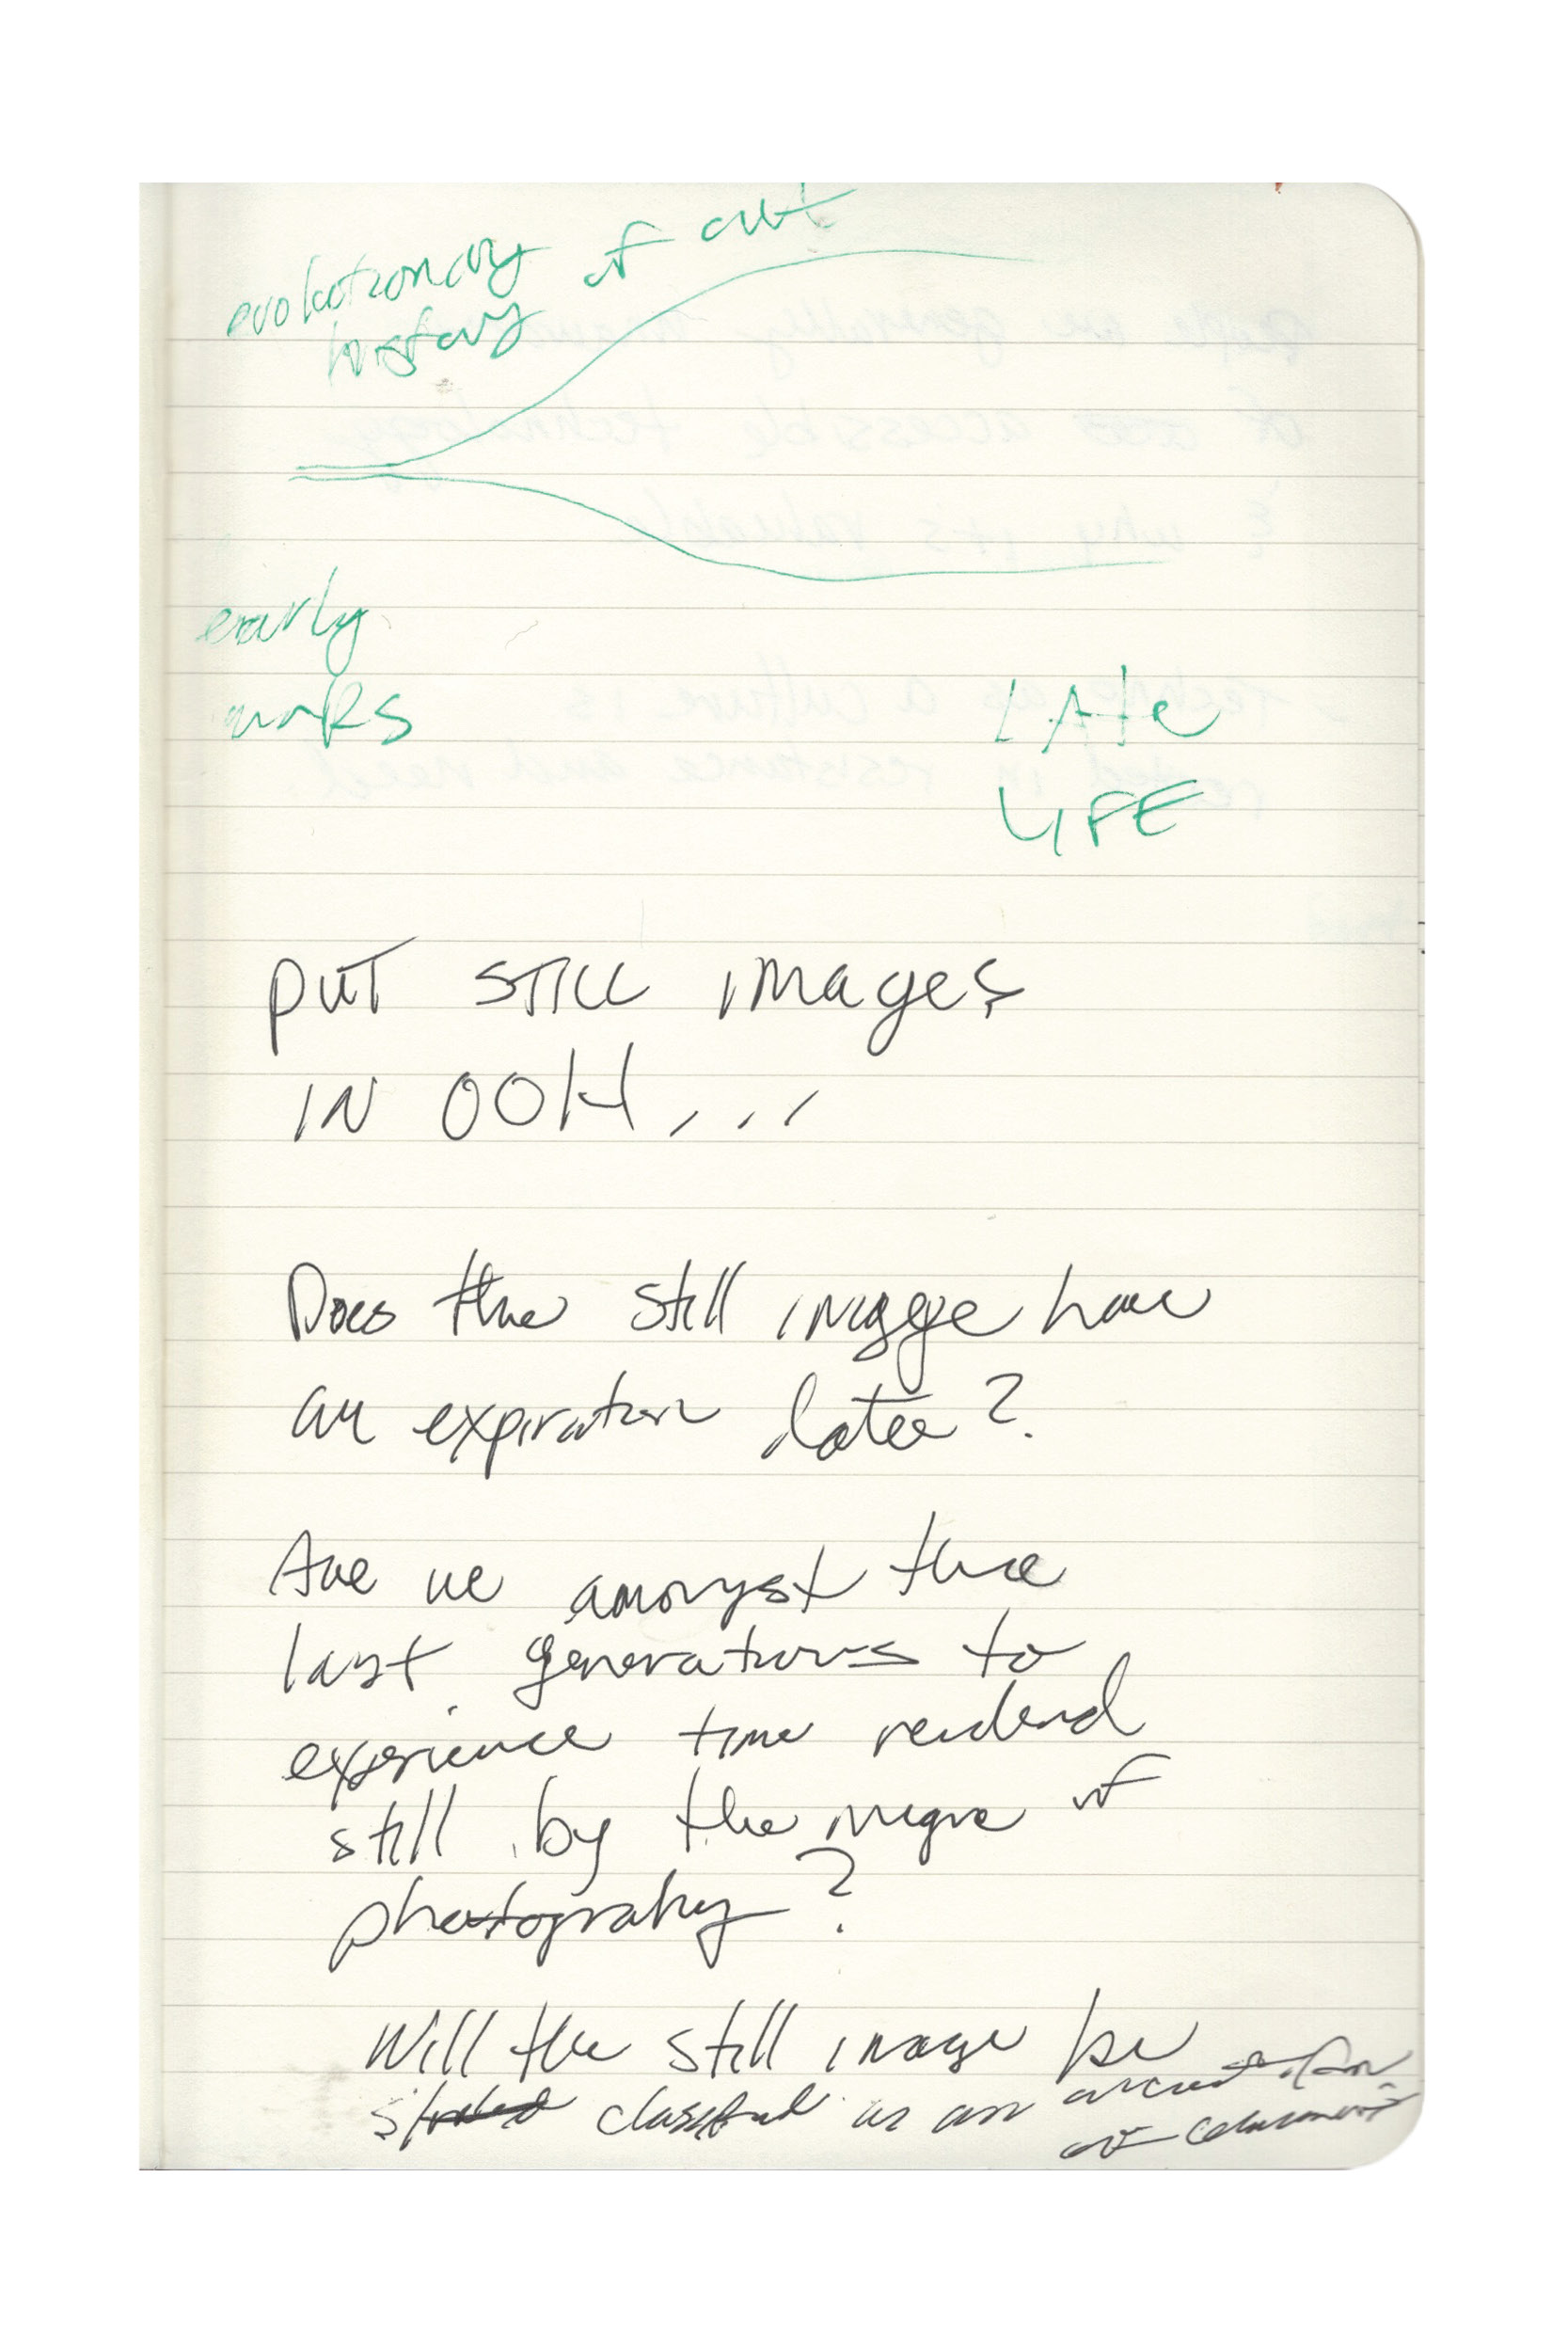 evolutionary of art
history
early
works
LATE
LIFE
PUT STILL IMAGES
IN OOH...
Does the still image have
an expiration date?
Are we amongst the
last generations to
experience time rendered
still by the magic of
photography?
Will the still image be
classified as an ancient form
of